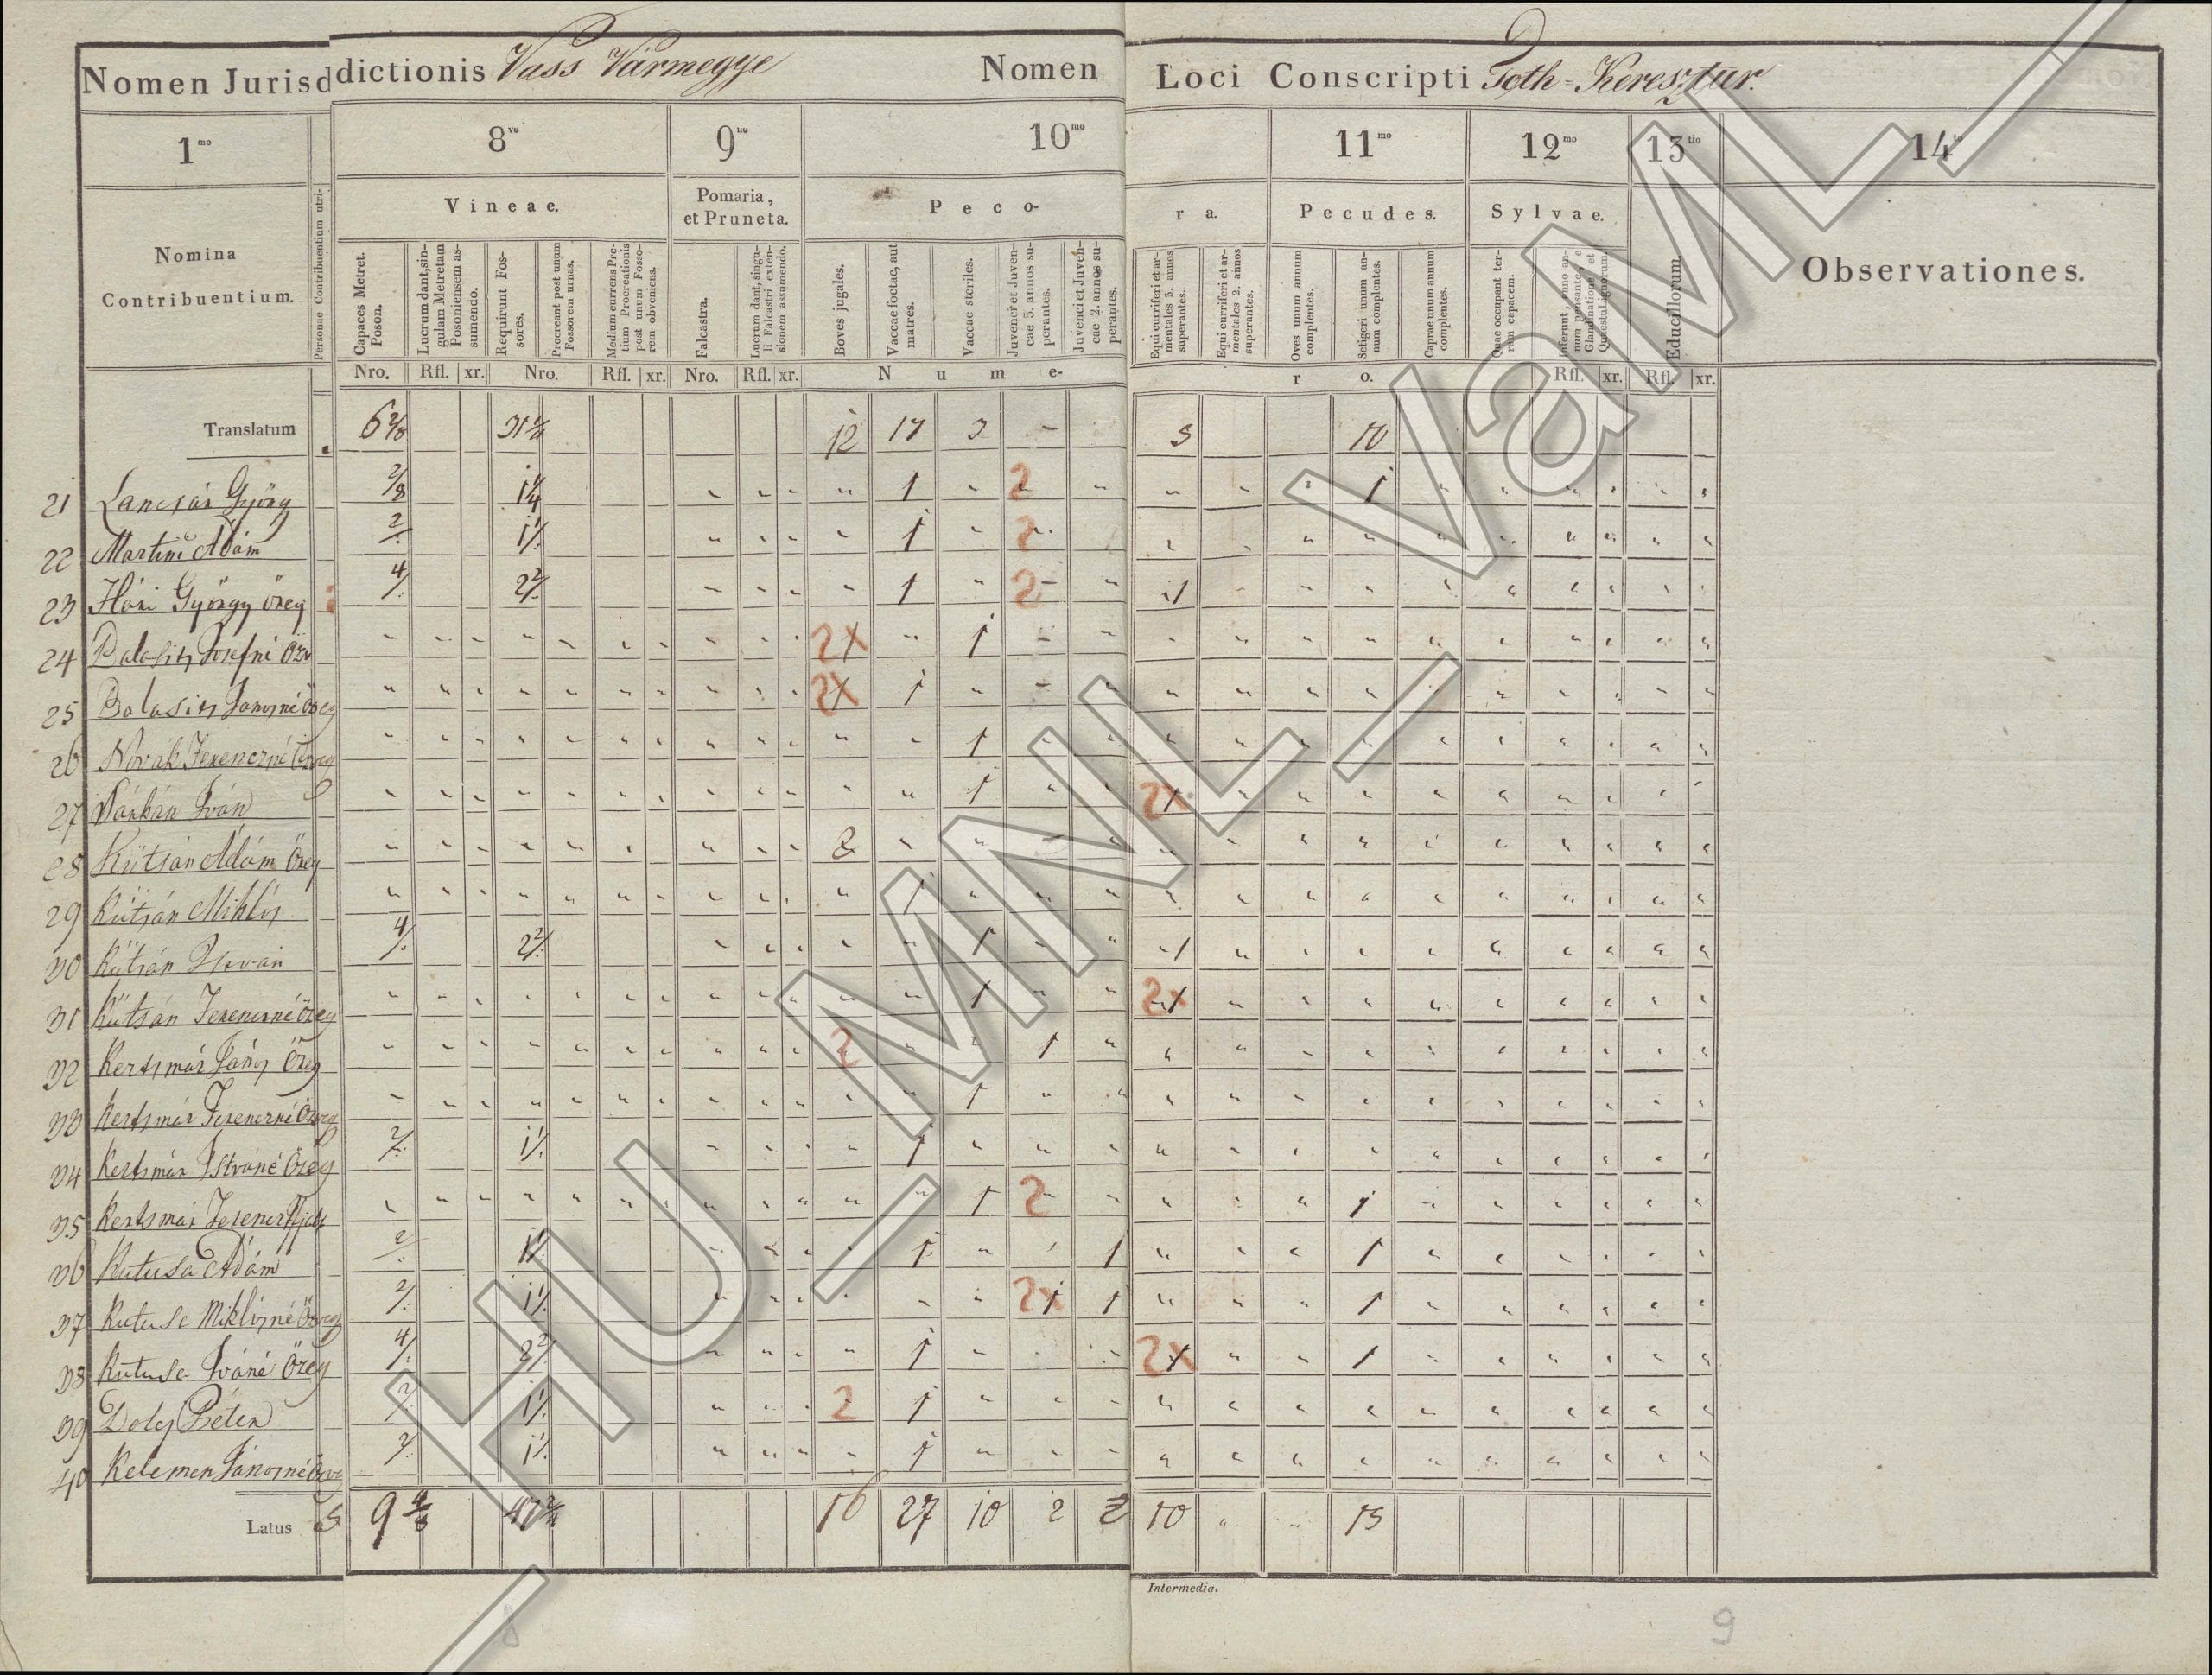 Nomen Jurisdictionis Vass Vármegye Nomen Loci Conscripti Toth-Keresztur.
1mo 8vo 9no 10mo 11mo 12mo 13tio 14to
Nomina Contribuentium.
Personae Contribuentium utri-
Vineae.
Pomaria, et Pruneta.
Peco-
ra.
Pecudes.
Sylvae.
Educillorum
Observationes.
Capaces Metret. Poson.
Lucrum dant, singulam Metretam Posoniensem assumendo.
Requirunt Fossores.
Procreant post unum Fossorem urnas.
Medium currens Pretium Procreationis post unum Fossorem obveniens.
Falcastra.
Lucrum dant, singuli Falcastri extensionem assumendo.
Boves jugales.
Vaccae foetae, aut matres.
Vaccae steriles.
Juvenci et Juvencae 3. annos superantes.
Juvenci et Juvencae 2. annos superantes.
Equi curriferi et armentales 3. annos superantes.
Equi curriferi et armentales 2. annos superantes.
Oves unum annum complentes.
Setigeri unum annum complentes.
Caprae unum annum complentes.
Quae occupant terram capacem.
Nro. Rfl. xr. Nro. Rfl. xr. Nro. Rfl. xr. Nume-
ro. Rfl. xr. Rfl. xr.
Translatum 6 2/8 31 1/4 12 17 3 - 5 10
21 Lancsár György 2/8 1 1/4 1 2 1
22 Martini Ádám 2/. 1 1/. 1 2
23 Hári György öreg 4/. 2 2/. 1 2 1
24 2x 1
25 Balasitz Janosné Öreg 2x 1
26 Novák Ferenczné 1
27 Iván 1 2x
28 Kütsán Ádám Öreg 2
29 Kütsán Miklós 1
30 Kütsán Istvan 4/. 2 2/. 1 1
31 Kütsán Ferencznéözeg 1 2x
32 Kertsmár János Özeg 2 1
33 Kertsmár Ferenczné 1
34 Kertsmár Istváné Özeg 2/. 1 1/. 1
35 Kertsmár Ferencz Ifjabb 1 2 1
36 Kutusa Ádám 2/. 1 1/. 1 1 1
37 Kutusa Miklósné 2/. 1 1/. 2x 1 1
38 Kutusa Iváné Özeg 4/. 2 2/. 1 2x 1
39 Péter 2/. 1 1/. 2 1
40 Kelemen Jánosné 2/. 1 1/. 1
Latus 9 4/8 47 2/4 16 27 10 2 2 10 15
Intermedia.
8
9
HU_MNL_VaML_